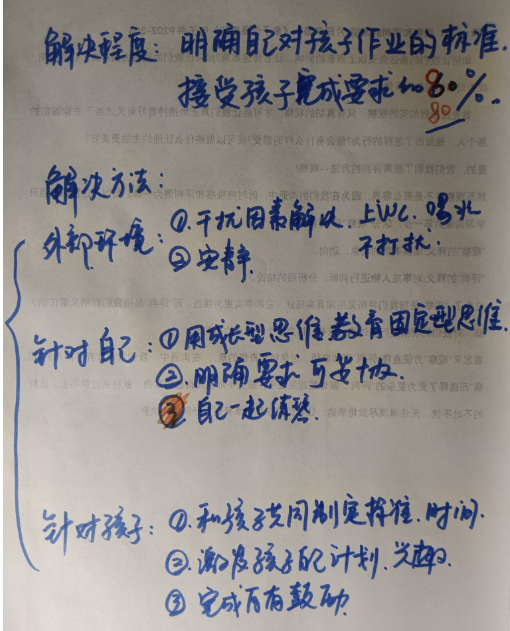 解决程度：明确自己对孩子作业的标准.
接受孩子完成要求的80%.
80
解决方法：
外部环境：①.干扰因素解决. 上WC. 喝水
不打扰.
②安静.
针对自己：①用成长型思维教育固定型思维.
②.明确要求
③自己一起练
针对孩子：①.和孩子共同制定标准.时间.
②.激发孩子自己计划.兴趣.
③完成后有鼓励.